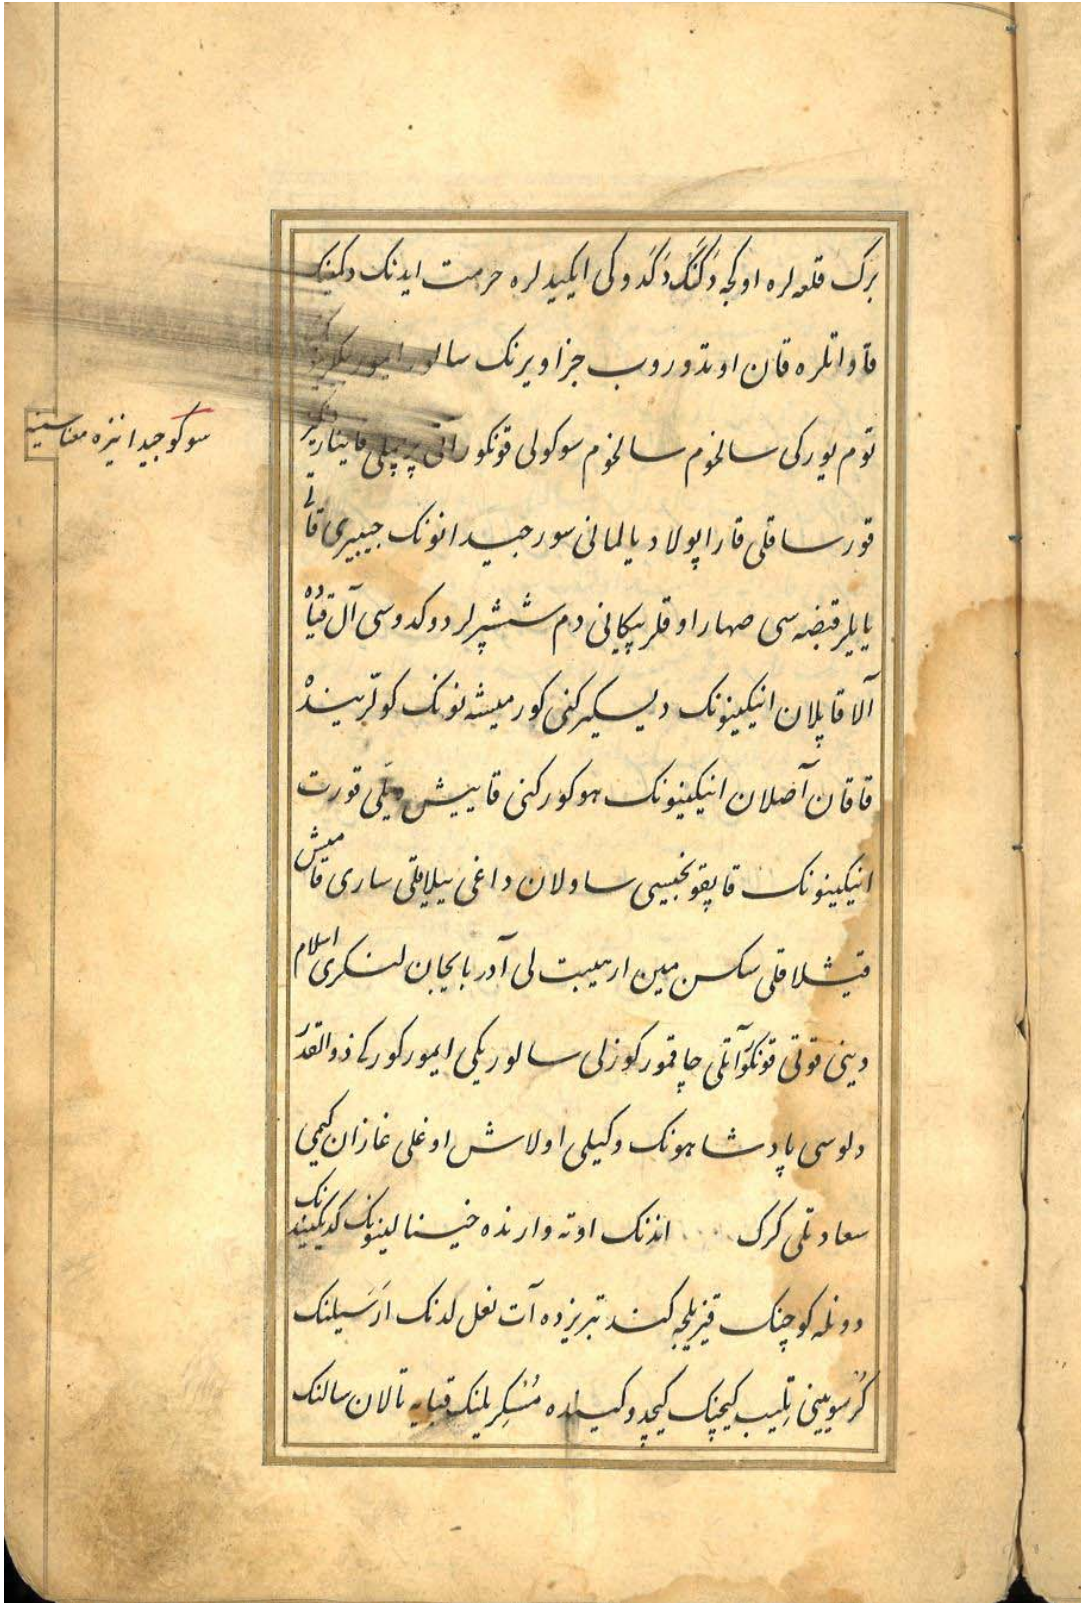 برک قلعه لره اوکجه دَکَنَگ دَکَدوکی ایکیدلره حرمت ایدنک دکینک
قاواتلره قان اوتدوروب جزا ویرنک سالور
توم یورکی سالخوم سالخوم سوکولی قونکور آتی قایناری
قورساقلی قارا پولاد یالمانی سور جیدانونک جیبیری قاتی
یایلر قبضه سی صهار اوقلر پیکانی دم ششپرلر دوکدوسی آل قیاده
آلا قاپلان انیکینونک دیسکیرکنی کورمیشه نونک کولربینده
قاقان آصلان انیکینونک هوکورکنی قاییش دیلی قورت
انیکینونک قاپقونجیسی ساولان داغی ییلاقلی ساری قامیش
قیشلاقلی سکسن مین ار هیبت لی آذربایجان لنکری اسلام
دینی قوتی قونکور آتلی چاقمور کوزلی سالور یکی ایمور کورکی ذوالقدر
دلوسی پادشاهونک وکیلی اولاش اوغلی غازان کیمی
سعادتلی کرک ... اندنک اوته وارنده خینالینونک کدیکیندنک
دونله کوچنک قیزیلجه کند تبریزده آت نعل لدنک ارَسَیلنک
کُر سویینی تِلیب کیچنک کیچدوکینده مُنکِریلنک قبایه تالان سالنک
سوکو جیدا نیزه معناسینه